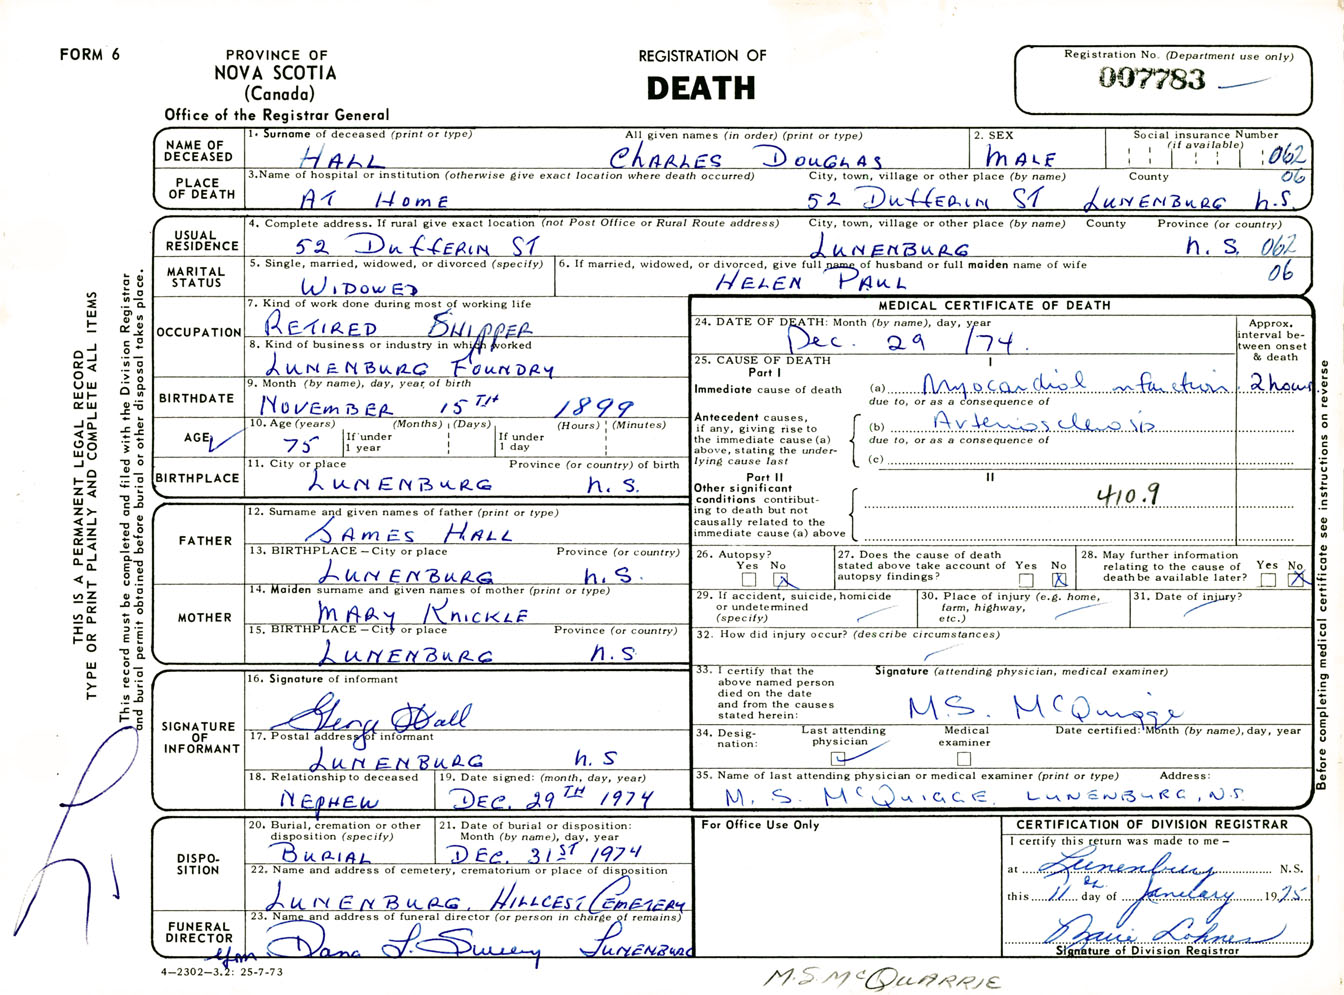 FORM 6
PROVINCE OF
NOVA SCOTIA
(Canada)
Office of the Registrar General
REGISTRATION OF
DEATH
Registration No. (Department use only)
007783
THIS IS A PERMANENT LEGAL RECORD
TYPE OR PRINT PLAINLY AND COMPLETE ALL ITEMS
This record must be completed and filed with the Division Registrar
and burial permit obtained before burial or other disposal takes place.
NAME OF DECEASED
1. Surname of deceased (print or type) All given names (in order) (print or type)
HALL CHARLES DOUGLAS
2. SEX
MALE
Social insurance Number
(if available)
062
PLACE OF DEATH
3. Name of hospital or institution (otherwise give exact location where death occurred) City, town, village or other place (by name) County
06
AT HOME 52 DUFFERIN ST LUNENBURG N.S.
USUAL RESIDENCE
4. Complete address. If rural give exact location (not Post Office or Rural Route address) City, town, village or other place (by name) County Province (or country)
52 DUFFERIN ST LUNENBURG N.S. 062
06
MARITAL STATUS
5. Single, married, widowed, or divorced (specify)
WIDOWED
6. If married, widowed, or divorced, give full name of husband or full maiden name of wife
HELEN PAUL
OCCUPATION
7. Kind of work done during most of working life
RETIRED SHIPPER
8. Kind of business or industry in which worked
LUNENBURG FOUNDRY
BIRTHDATE
9. Month (by name), day, year of birth
NOVEMBER 15TH 1899
AGE
10. Age (years) (Months) (Days) (Hours) (Minutes)
75 If under 1 year If under 1 day
BIRTHPLACE
11. City or place Province (or country) of birth
LUNENBURG N.S.
FATHER
12. Surname and given names of father (print or type)
JAMES HALL
13. BIRTHPLACE – City or place Province (or country)
LUNENBURG N.S.
MOTHER
14. Maiden surname and given names of mother (print or type)
MARY KNICKLE
15. BIRTHPLACE – City or place Province (or country)
LUNENBURG N.S
SIGNATURE OF INFORMANT
16. Signature of informant
George Hall
17. Postal address of informant
LUNENBURG N.S
18. Relationship to deceased
NEPHEW
19. Date signed: (month, day, year)
DEC. 29TH 1974
DISPOSITION
20. Burial, cremation or other disposition (specify)
BURIAL
21. Date of burial or disposition: Month (by name), day, year
DEC. 31ST 1974
22. Name and address of cemetery, crematorium or place of disposition
LUNENBURG. HILLCEST CEMETERY
FUNERAL DIRECTOR
23. Name and address of funeral director (or person in charge of remains)
Dana L. Sweeny Lunenburg
4–2302–3.2: 25-7-73
MEDICAL CERTIFICATE OF DEATH
24. DATE OF DEATH: Month (by name), day, year
Dec. 29 /74.
Approx. interval between onset & death
25. CAUSE OF DEATH
Part I I
Immediate cause of death (a) Myocardial infarction 2 hours
due to, or as a consequence of
Antecedent causes, if any, giving rise to the immediate cause (a) above, stating the underlying cause last
(b) Arteriosclerosis
due to, or as a consequence of
(c)
Part II II
Other significant conditions contributing to death but not causally related to the immediate cause (a) above
410.9
26. Autopsy?
Yes No
27. Does the cause of death stated above take account of autopsy findings?
Yes No
28. May further information relating to the cause of death be available later?
Yes No
29. If accident, suicide, homicide or undetermined (specify)
30. Place of injury (e.g. home, farm, highway, etc.)
31. Date of injury?
32. How did injury occur? (describe circumstances)
33. I certify that the above named person died on the date and from the causes stated herein:
Signature (attending physician, medical examiner)
M.S. McQuigge
34. Designation:
Last attending physician
Medical examiner
Date certified: Month (by name), day, year
35. Name of last attending physician or medical examiner (print or type) Address:
M. S. McQUIGGE. LUNENBURG, N.S.
Before completing medical certificate see instructions on reverse
For Office Use Only
CERTIFICATION OF DIVISION REGISTRAR
I certify this return was made to me –
at Lunenburg N.S.
this 11th day of January 1975
Lohnes
Signature of Division Registrar
M.S. McQUARRIE